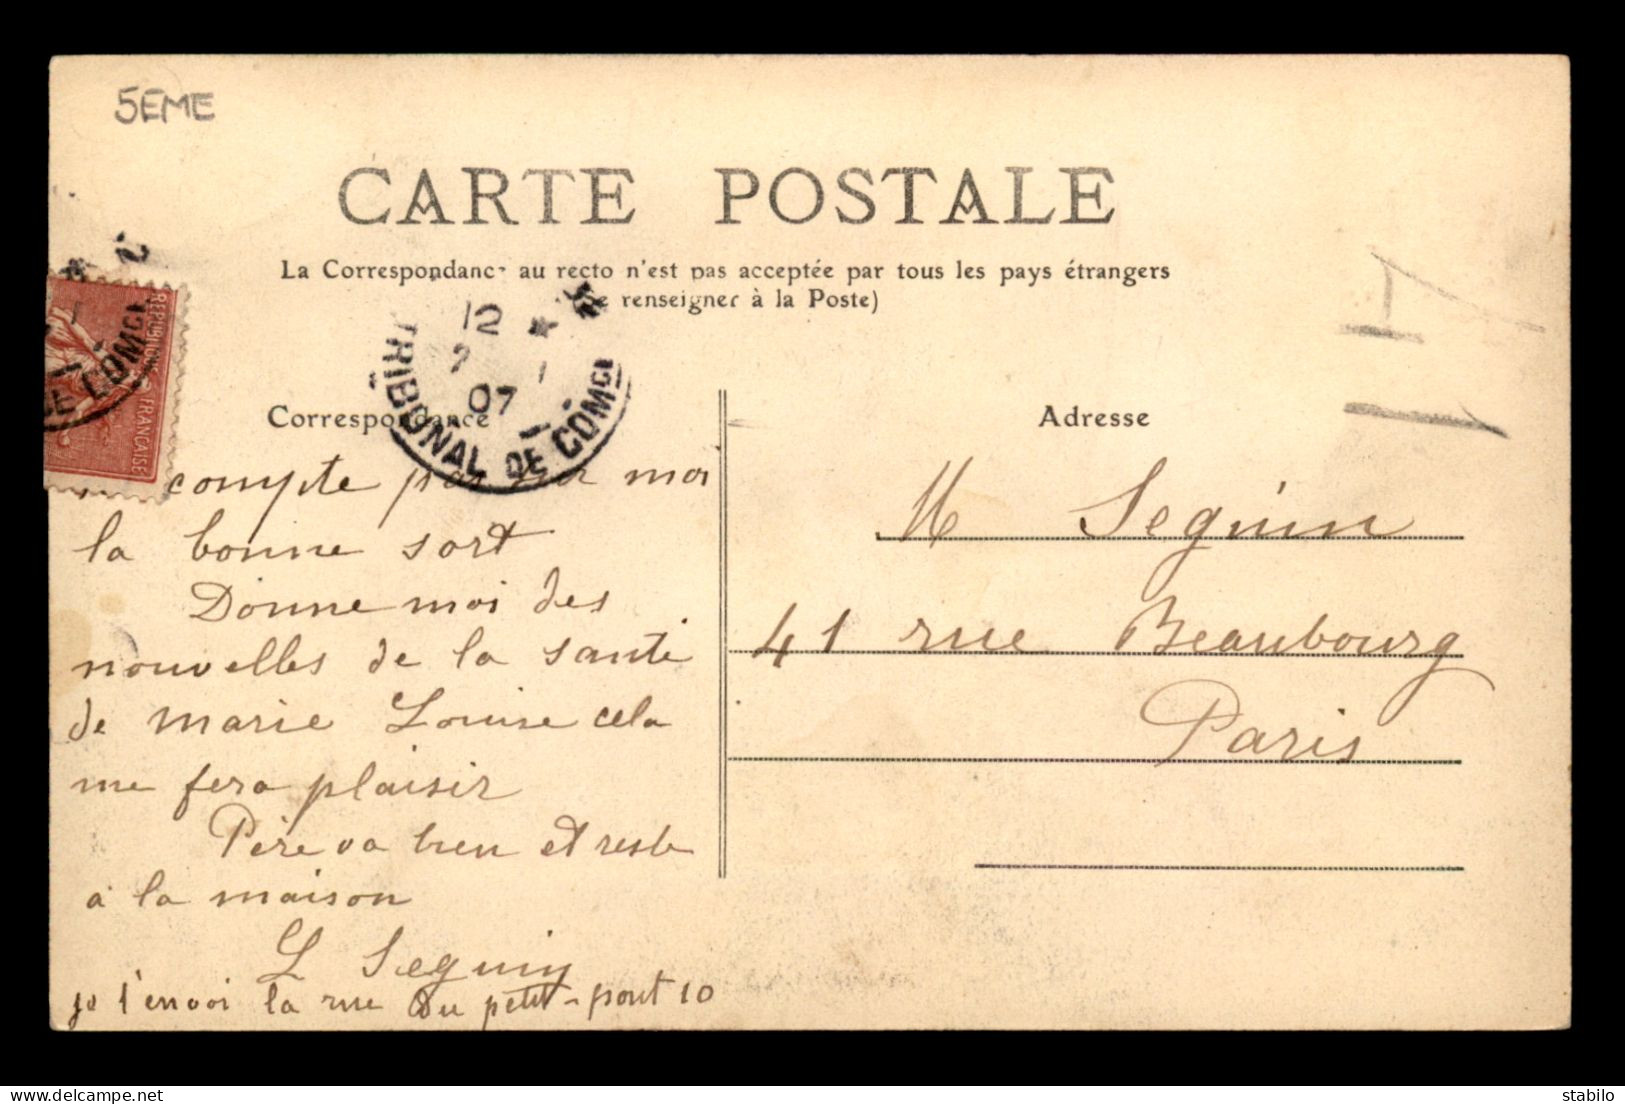 5EME
CARTE POSTALE
La Correspondance au recto n'est pas acceptée par tous les pays étrangers
renseigner à la Poste)
12
07
TRIBUNAL DE COMCE
REPUBLIQUE FRANÇAISE
DE COMCE
Correspondance
Adresse
compte pas sur moi
la bonne sort
Donne moi des
nouvelles de la santé
de marie Louise cela
me fera plaisir
Père va bien et reste
a la maison
L Seguin
je t'envoi la rue du petit-pont 10
M Seguin
41 rue Beaubourg
Paris
Stabilo
www.delcampe.net